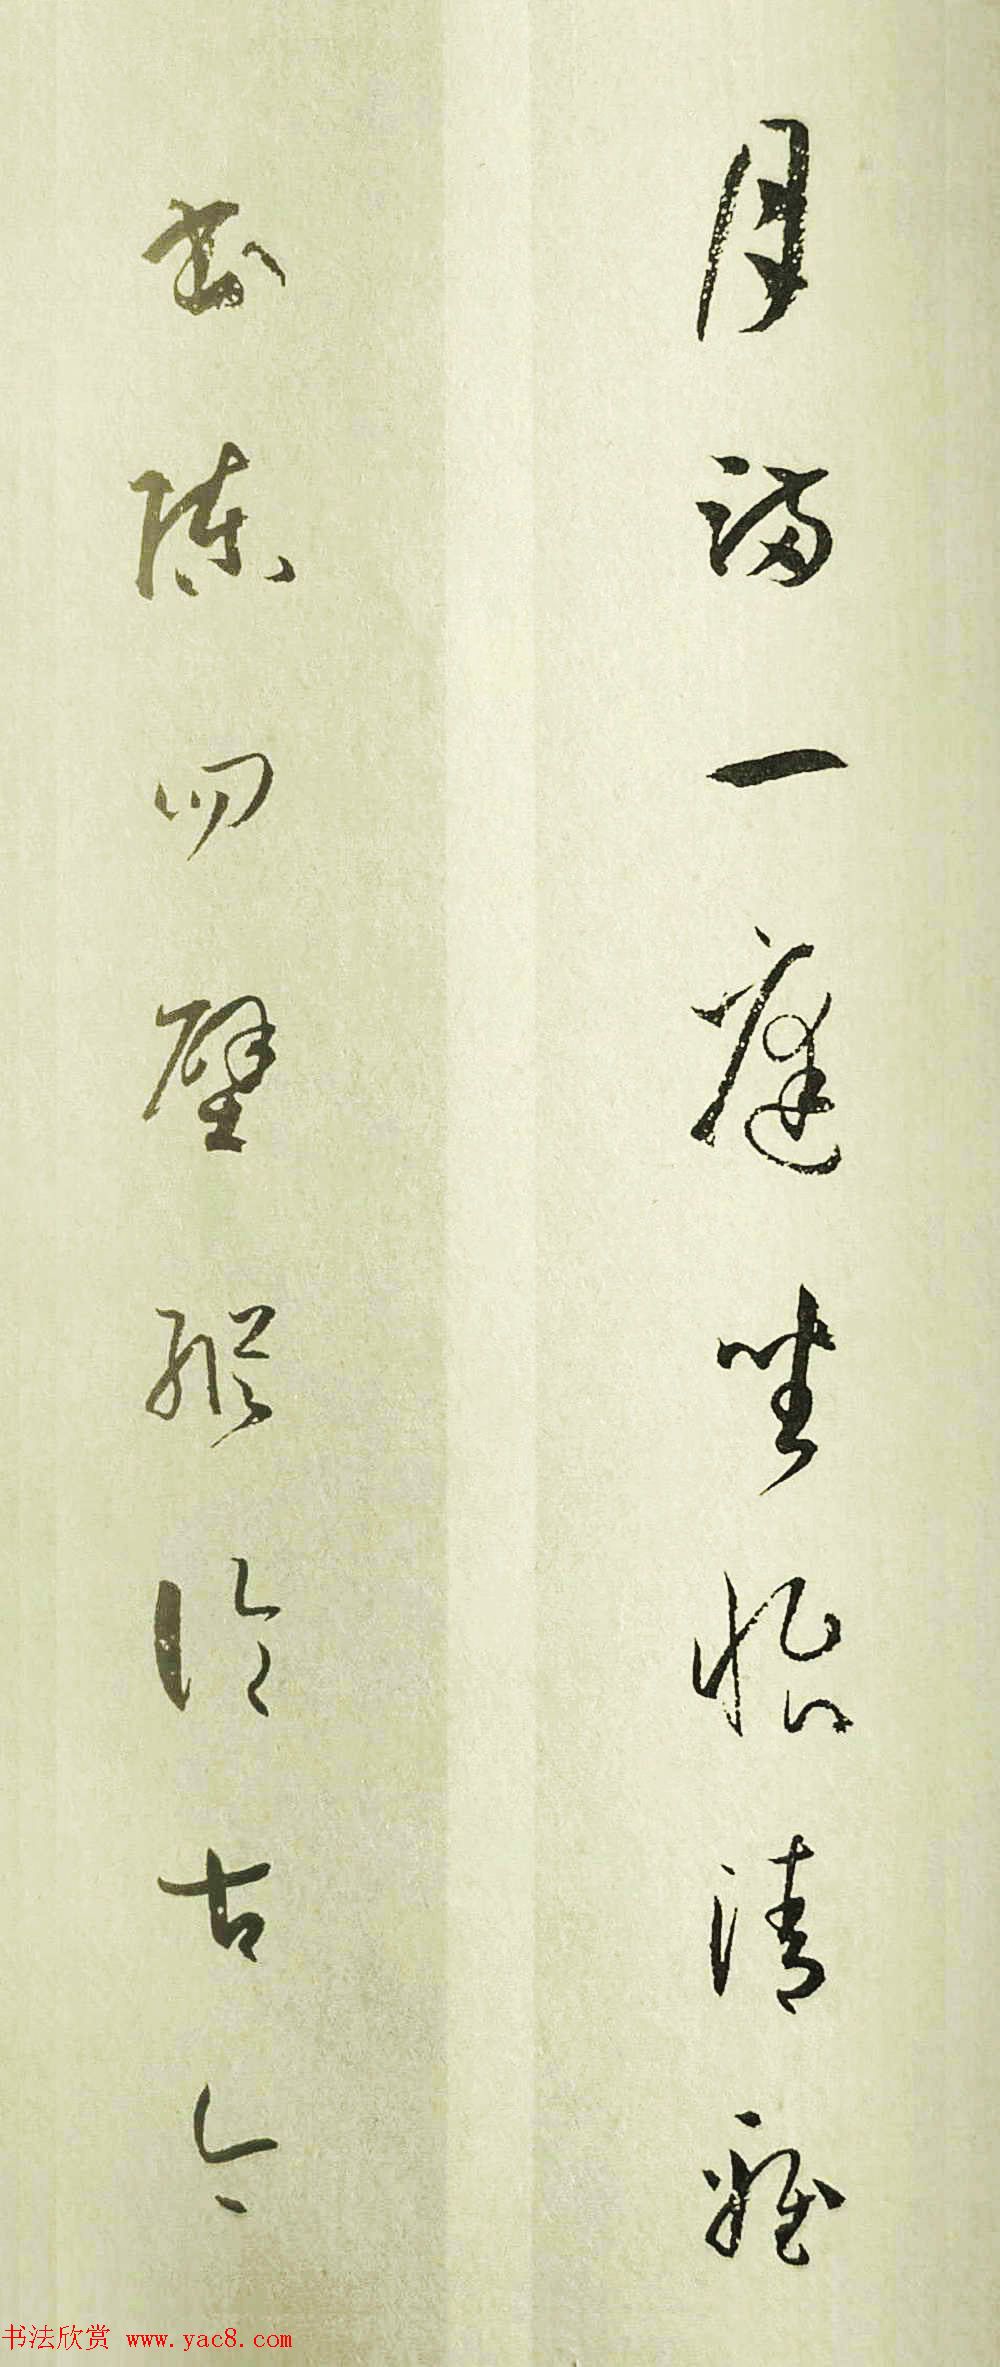 月满一庭坐怡清雅
书陈四壁纵论古今
书法欣赏 www.yac8.com